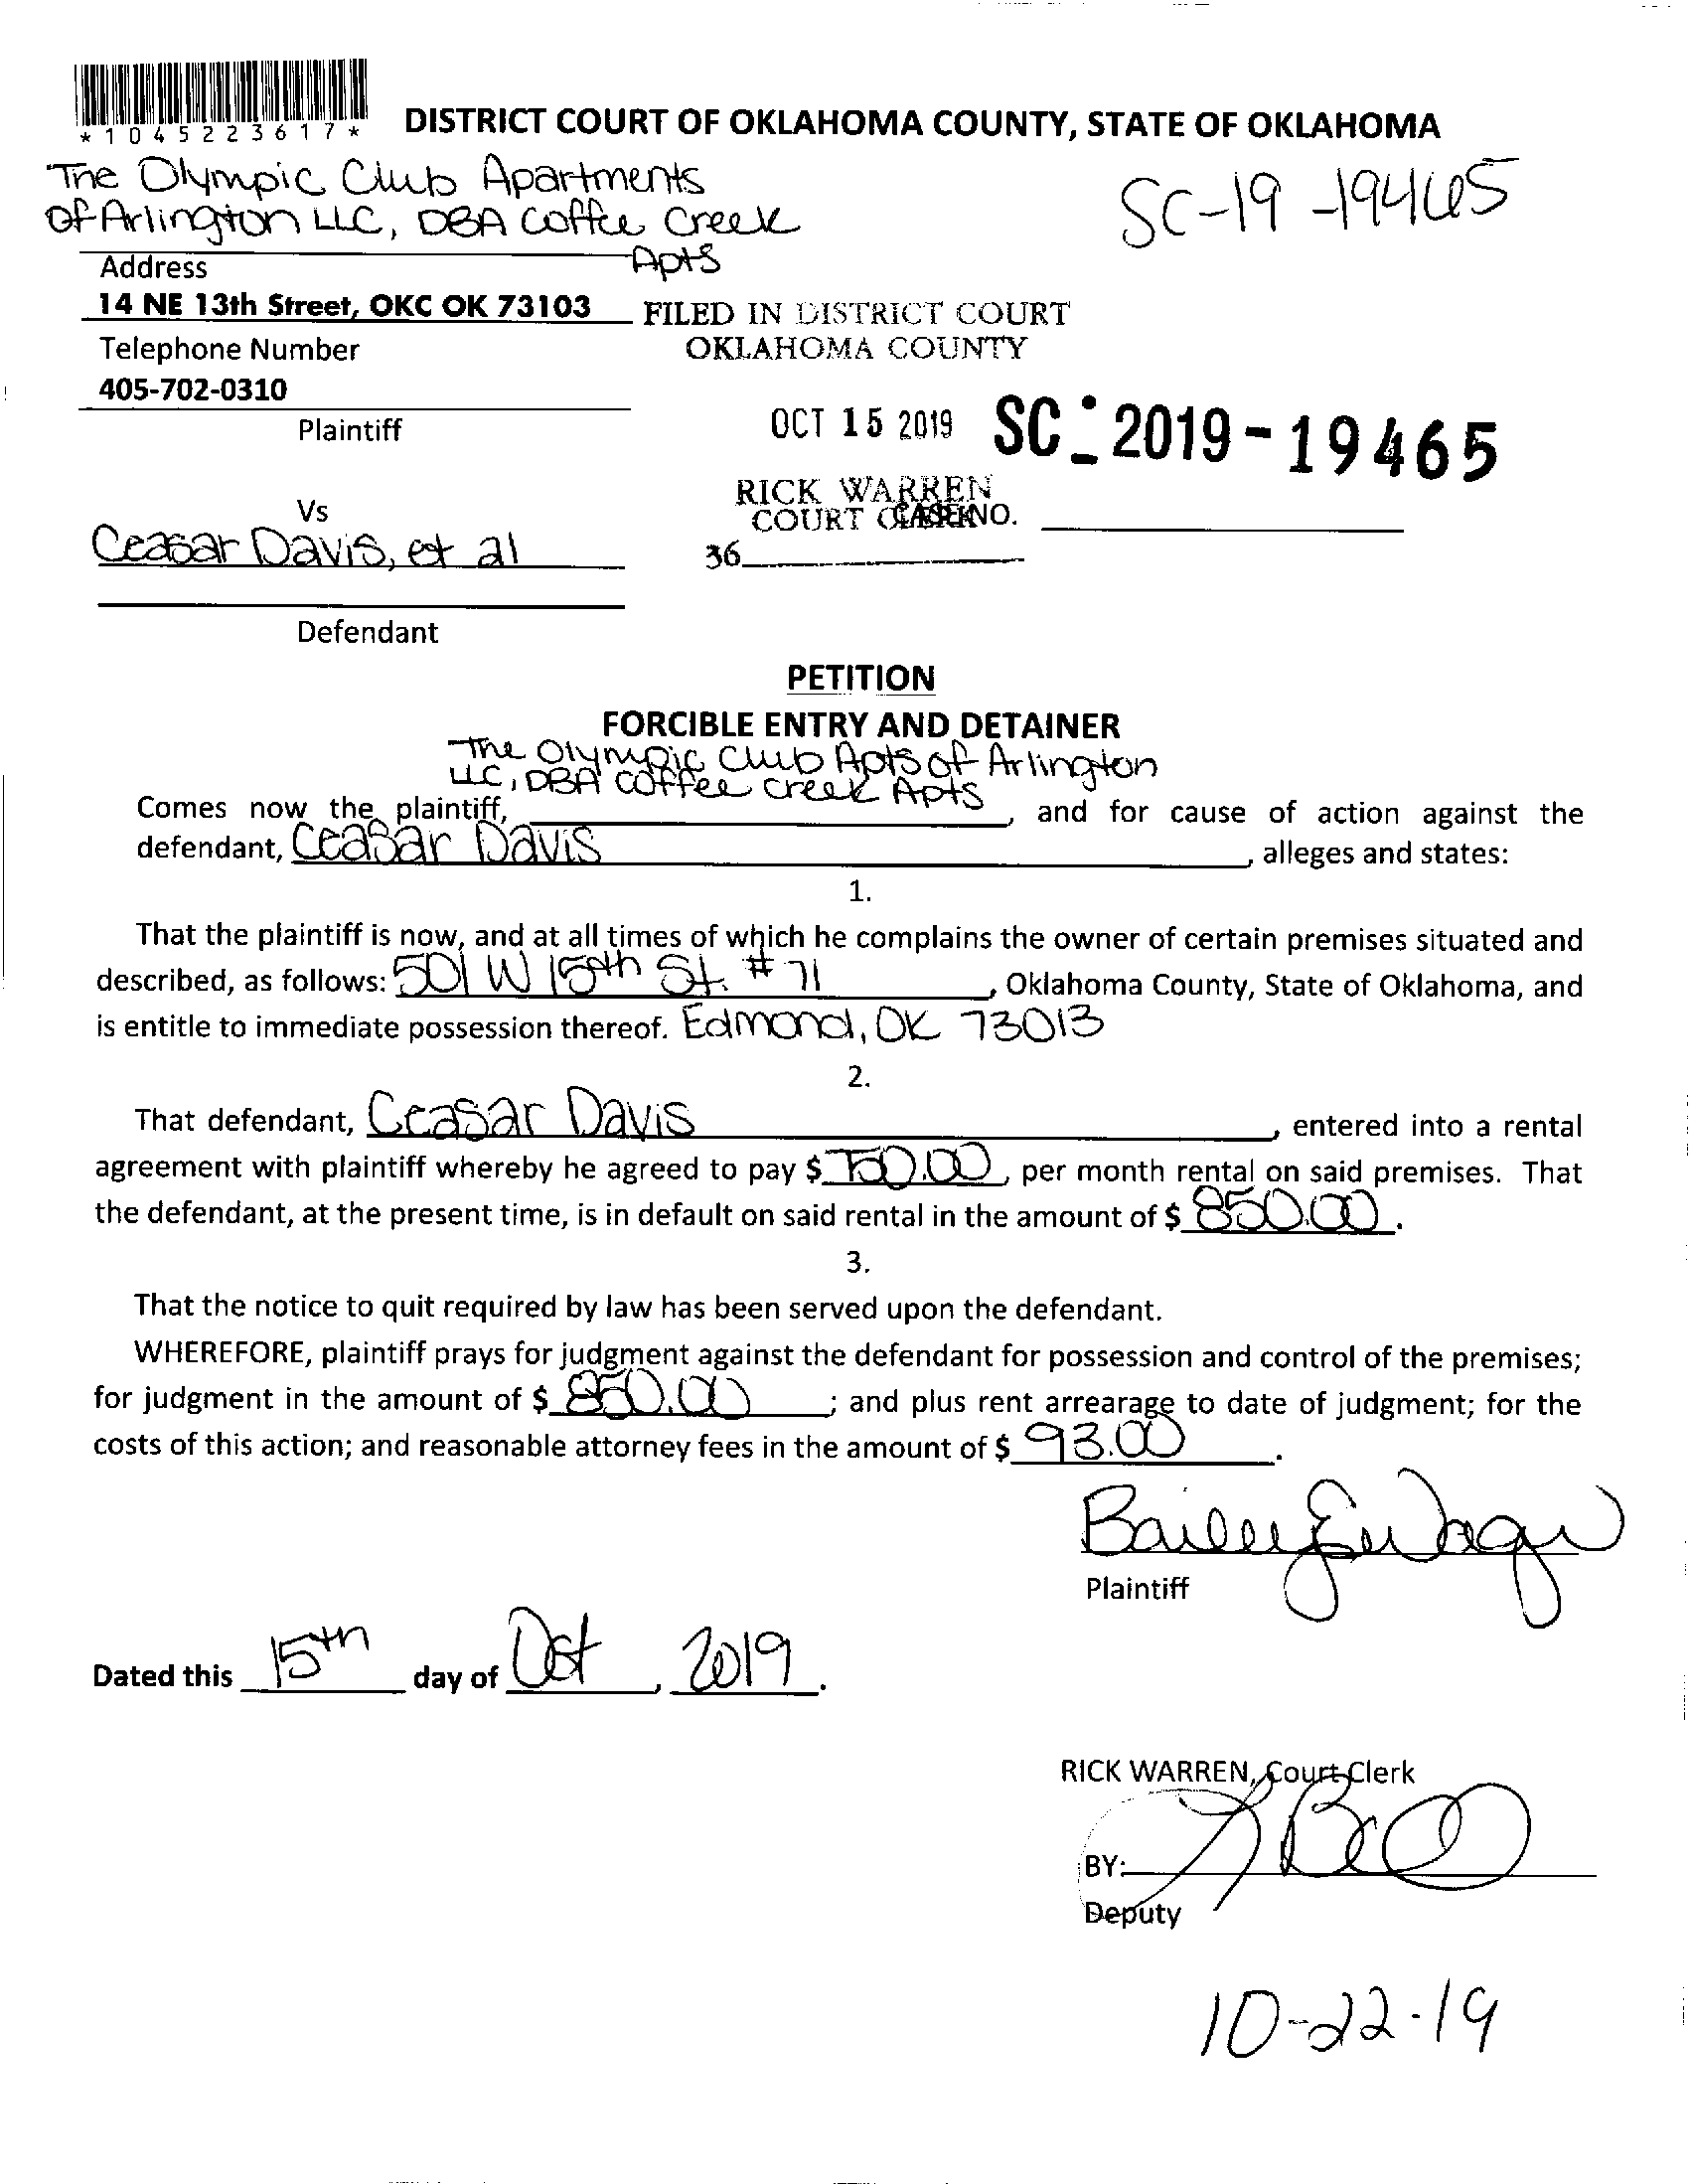 *1045223617*
DISTRICT COURT OF OKLAHOMA COUNTY, STATE OF OKLAHOMA
The Olympic Club Apartments
of Arlington LLC, DBA Coffee Creek
Apts
SC-19-19465
Address
14 NE 13th Street, OKC OK 73103
FILED IN DISTRICT COURT
OKLAHOMA COUNTY
Telephone Number
405-702-0310
Plaintiff
OCT 15 2019
SC-2019-19465
RICK WARREN
COURT CLERK
CASE NO.
36
Vs
Ceasar Davis, et al
Defendant
PETITION
FORCIBLE ENTRY AND DETAINER
The Olympic Club Apts of Arlington
LLC, DBA Coffee Creek Apts
Comes now the plaintiff, , and for cause of action against the
defendant, Ceasar Davis, alleges and states:
1.
That the plaintiff is now, and at all times of which he complains the owner of certain premises situated and
described, as follows: 501 W 15th St. #71, Oklahoma County, State of Oklahoma, and
is entitle to immediate possession thereof. Edmond, OK 73013
2.
That defendant, Ceasar Davis, entered into a rental
agreement with plaintiff whereby he agreed to pay $ 750.00, per month rental on said premises. That
the defendant, at the present time, is in default on said rental in the amount of $ 850.00.
3.
That the notice to quit required by law has been served upon the defendant.
WHEREFORE, plaintiff prays for judgment against the defendant for possession and control of the premises;
for judgment in the amount of $ 850.00; and plus rent arrearage to date of judgment; for the
costs of this action; and reasonable attorney fees in the amount of $ 93.00.
Plaintiff
Dated this 15th day of Oct, 2019.
RICK WARREN, Court Clerk
BY:
Deputy
10-22-19